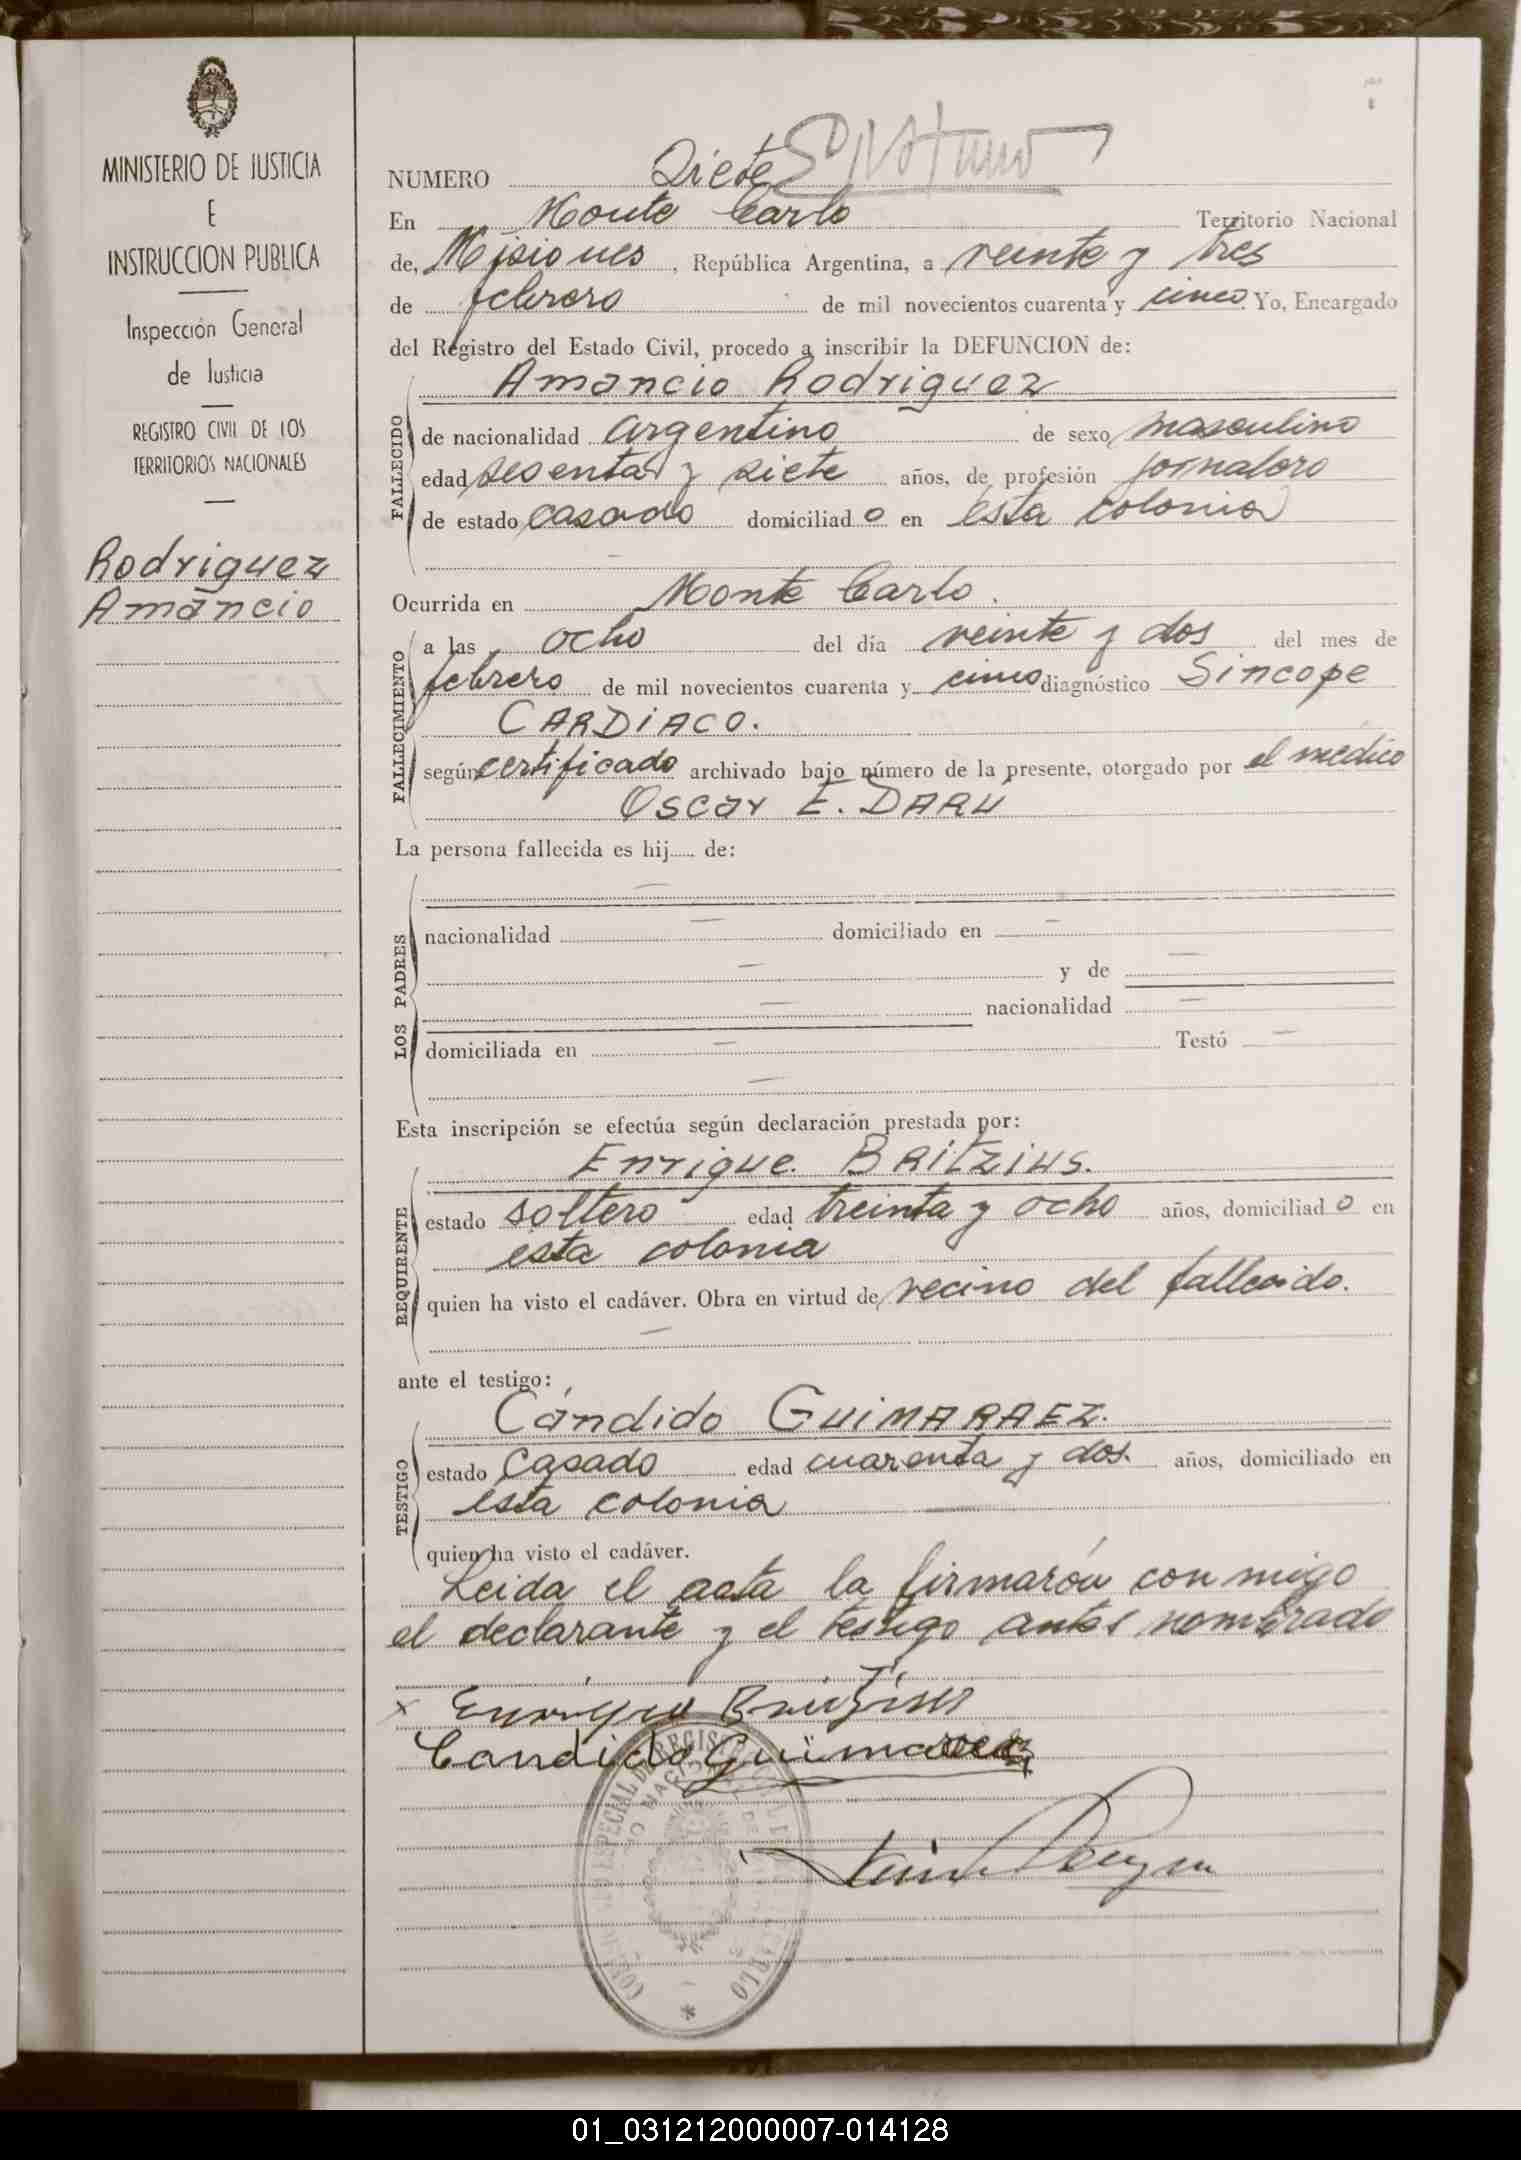 MINISTERIO DE JUSTICIA
E
INSTRUCCION PUBLICA
Inspección General
de Justicia
REGISTRO CIVIL DE LOS
TERRITORIOS NACIONALES
Rodriguez
Amancio
NUMERO Siete
En Monte Carlo Territorio Nacional
de, Misiones, República Argentina, a veinte y tres
de febrero de mil novecientos cuarenta y cinco. Yo, Encargado
del Registro del Estado Civil, procedo a inscribir la DEFUNCION de:
FALLECIDO
Amancio Rodriguez
de nacionalidad argentino de sexo masculino
edad sesenta y siete años, de profesión jornalero
de estado casado domiciliado en esta colonia
Ocurrida en Monte Carlo.
FALLECIMIENTO
a las ocho del día veinte y dos del mes de
febrero de mil novecientos cuarenta y cinco diagnóstico Sincope
CARDIACO.
según certificado archivado bajo número de la presente, otorgado por el médico
Oscar E. DARÚ
La persona fallecida es hij..... de:
LOS PADRES
—
nacionalidad — domiciliado en —
— y de —
— nacionalidad —
domiciliada en — Testó —
—
Esta inscripción se efectúa según declaración prestada por:
REQUIRENTE
Enrique BRITZIUS.
estado soltero edad treinta y ocho años, domiciliado en
esta colonia
quien ha visto el cadáver. Obra en virtud de vecino del fallecido.
—
ante el testigo:
TESTIGO
Cándido GUIMARAEZ.
estado casado edad cuarenta y dos. años, domiciliado en
esta colonia —
quien ha visto el cadáver.
Leida el acta la firmarón con migo
el declarante y el testigo antes nombrado
x Enrique Britzius
Candido Guimaraez
01_031212000007-014128